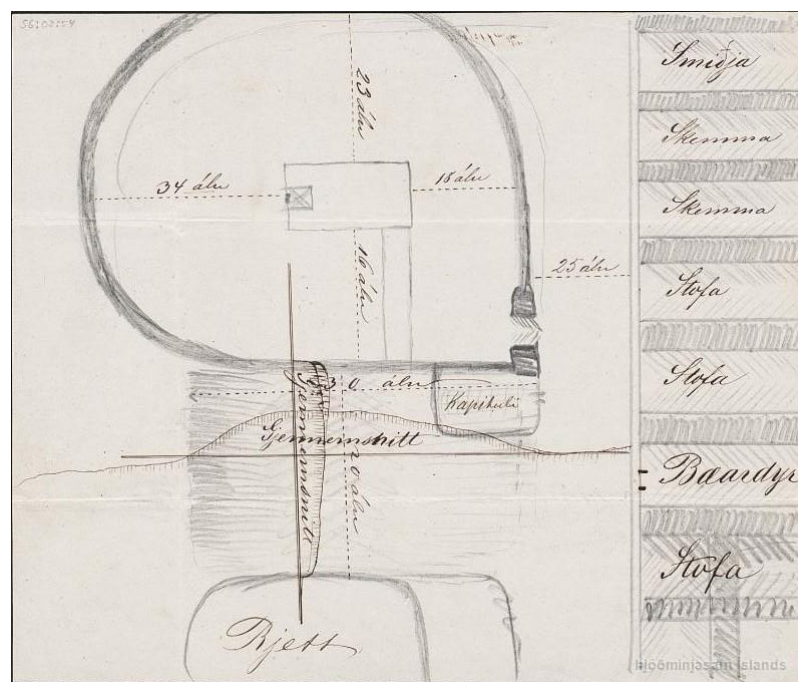 23 álu
34 álu
18 álu
16 álu
25 álu
30 álu
Kapituli
Gjennemsnitt
Gjennemsnitt
20 álu
Rjett
Smiðja
Skemma
Skemma
Stofa
Stofa
Bæardyr
Stofa
Þjóðminjasafn Íslands